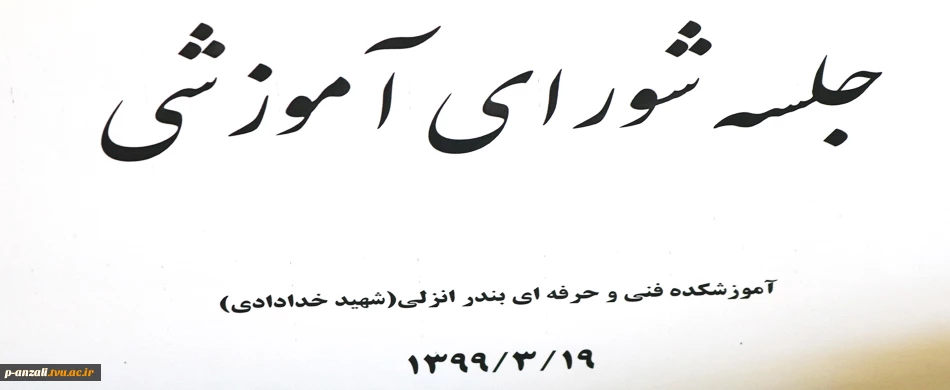 جلسه شورای آموزشی
آموزشکده فنی و حرفه ای بندر انزلی(شهید خدادادی)
۱۳۹۹/۳/۱۹
p-anzali.tvu.ac.ir